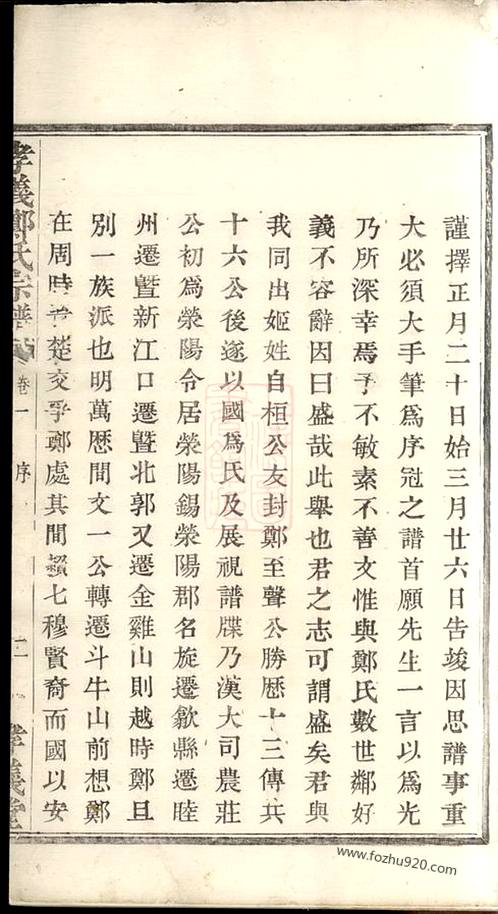 謹擇正月二十日始三月廿六日告竣因思譜事重
大必須大手筆為序冠之譜首願先生一言以為光
乃所深幸焉予不敏素不善文惟與鄭氏數世鄰好
義不容辭因曰盛哉此舉也君之志可謂盛矣君與
我同出姬姓自桓公友封鄭至聲公勝歷十三傳共
十六公後遂以國為氏及展視譜牒乃漢大司農莊
公初為滎陽令居滎陽錫滎陽郡名旋遷歙縣遷睦
州遷暨新江口遷暨北郭又遷金雞山則越時鄭且
別一族派也明萬歷間文一公轉遷斗牛山前想鄭
在周時 楚交爭鄭處其間賴七穆賢裔而國以安
孝義鄭氏宗譜 卷一 序 二 孝義堂
www.fozhu920.com